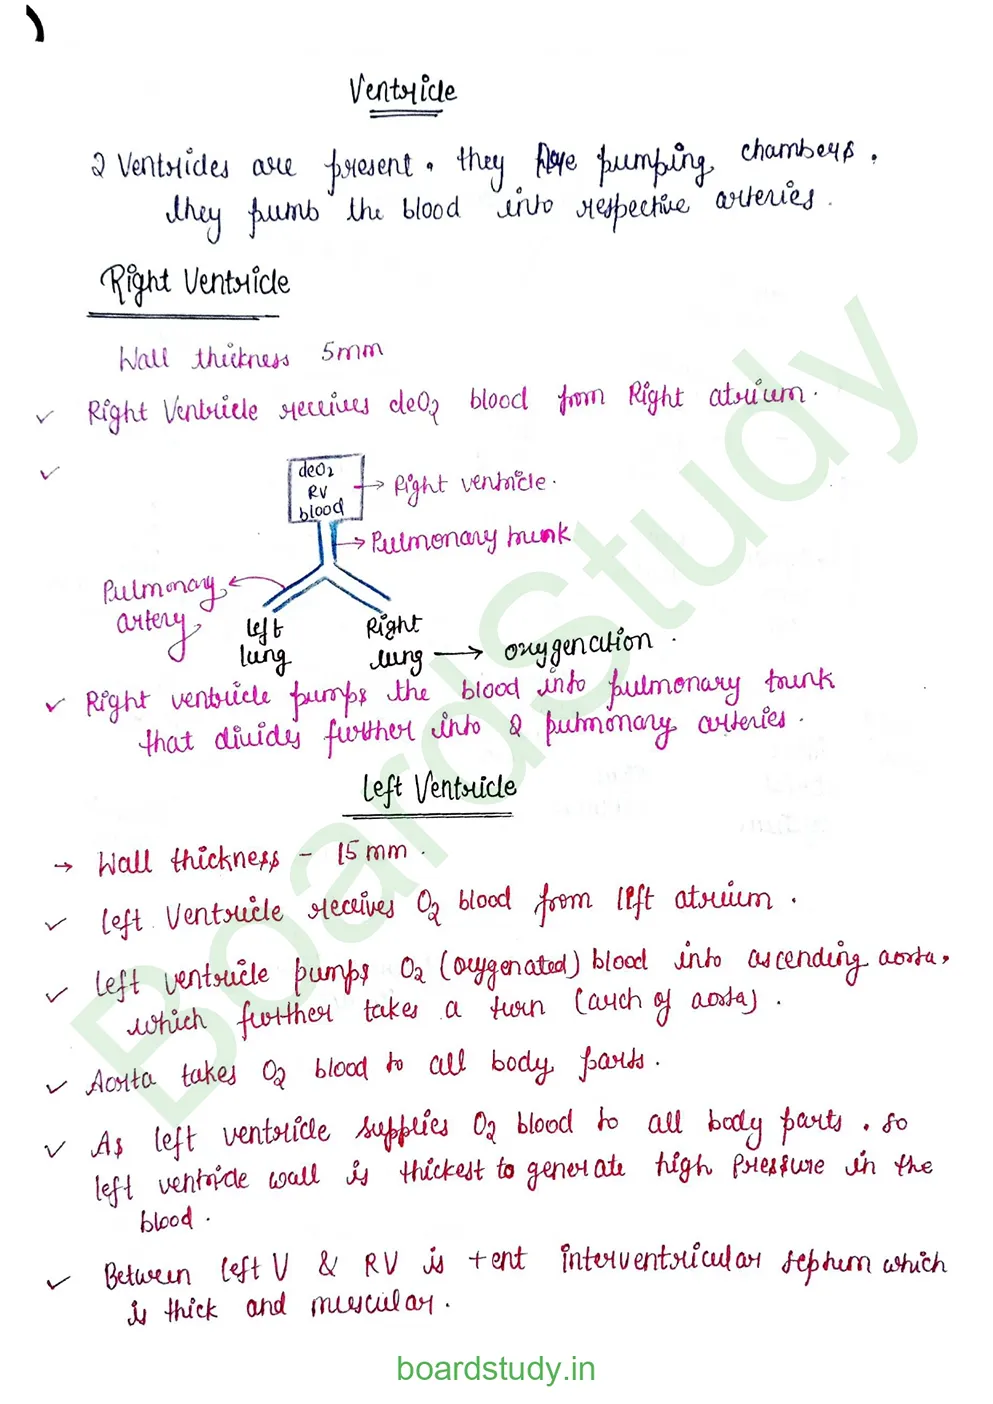 Ventricle
2 Ventricles are present. they are pumping chambers.
they pumb the blood into respective arteries.
Right Ventricle
Wall thickness 5mm
✓ Right Ventricle receives deO2 blood from Right atrium.
✓
deO2
RV
blood
→ Right ventricle.
→ Pulmonary trunk
Pulmonary
artery
left
lung
Right
lung → oxygenation.
✓ Right ventricle pumps the blood into pulmonary trunk
that divides further into 2 pulmonary arteries.
Left Ventricle
→ Wall thickness – 15 mm.
✓ left Ventricle receives O2 blood from left atrium.
✓ left ventricle pumps O2 (oxygenated) blood into ascending aorta,
which further takes a turn (arch of aorta).
✓ Aorta takes O2 blood to all body parts.
✓ As left ventricle supplies O2 blood to all body parts. so
left ventricle wall is thickest to generate high Pressure in the
blood.
✓ Between left V & RV is +ent interventricular septum which
is thick and muscular.
BoardStudy
boardstudy.in